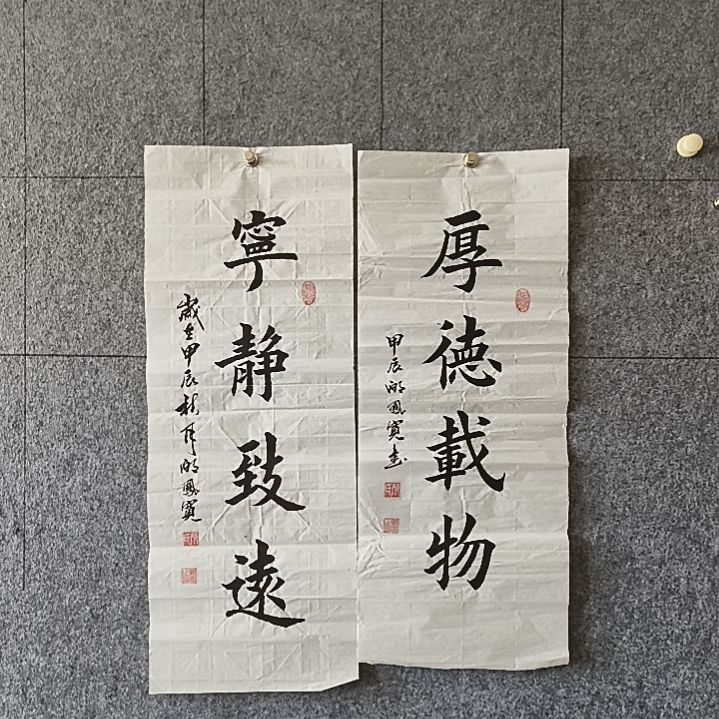 厚德載物
甲辰
鳳寬書
寧靜致遠
歲在甲辰秋月
鳳寬